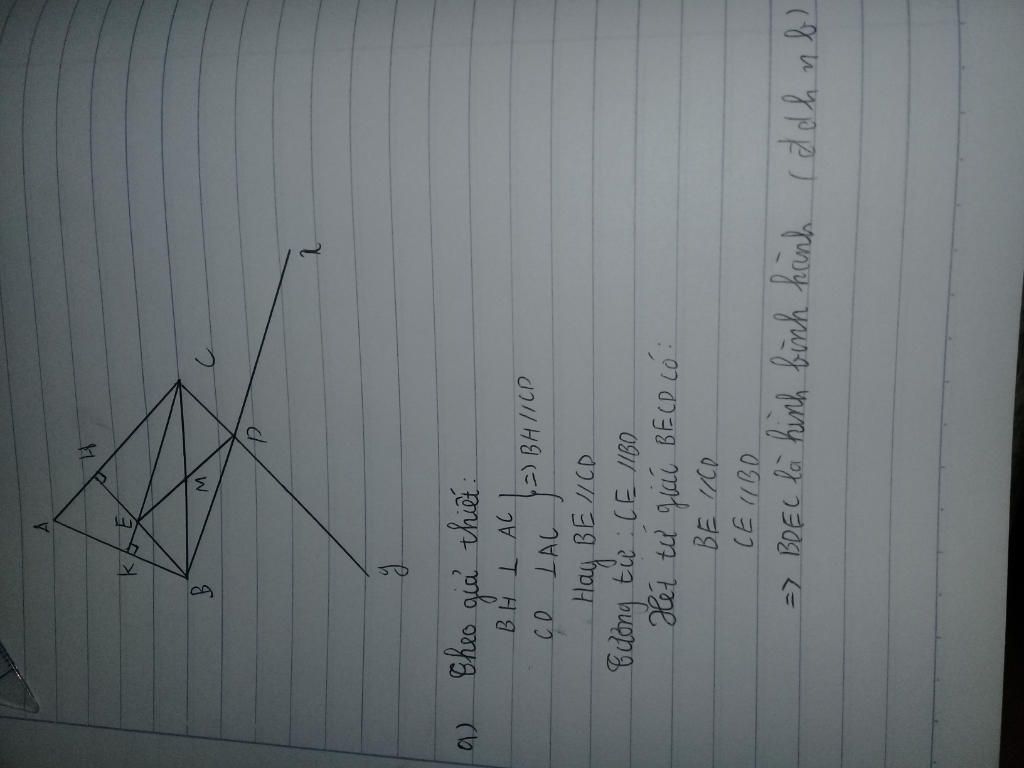 A
K
H
E
B
M
C
D
y
x
a) Theo giả thiết:
BH ⊥ AC
CD ⊥ AC } => BH // CD
Hay BE // CD
Tương tự: CE // BD
Xét tứ giác BECD có:
BE // CD
CE // BD
=> BDEC là hình bình hành (ddhnb)